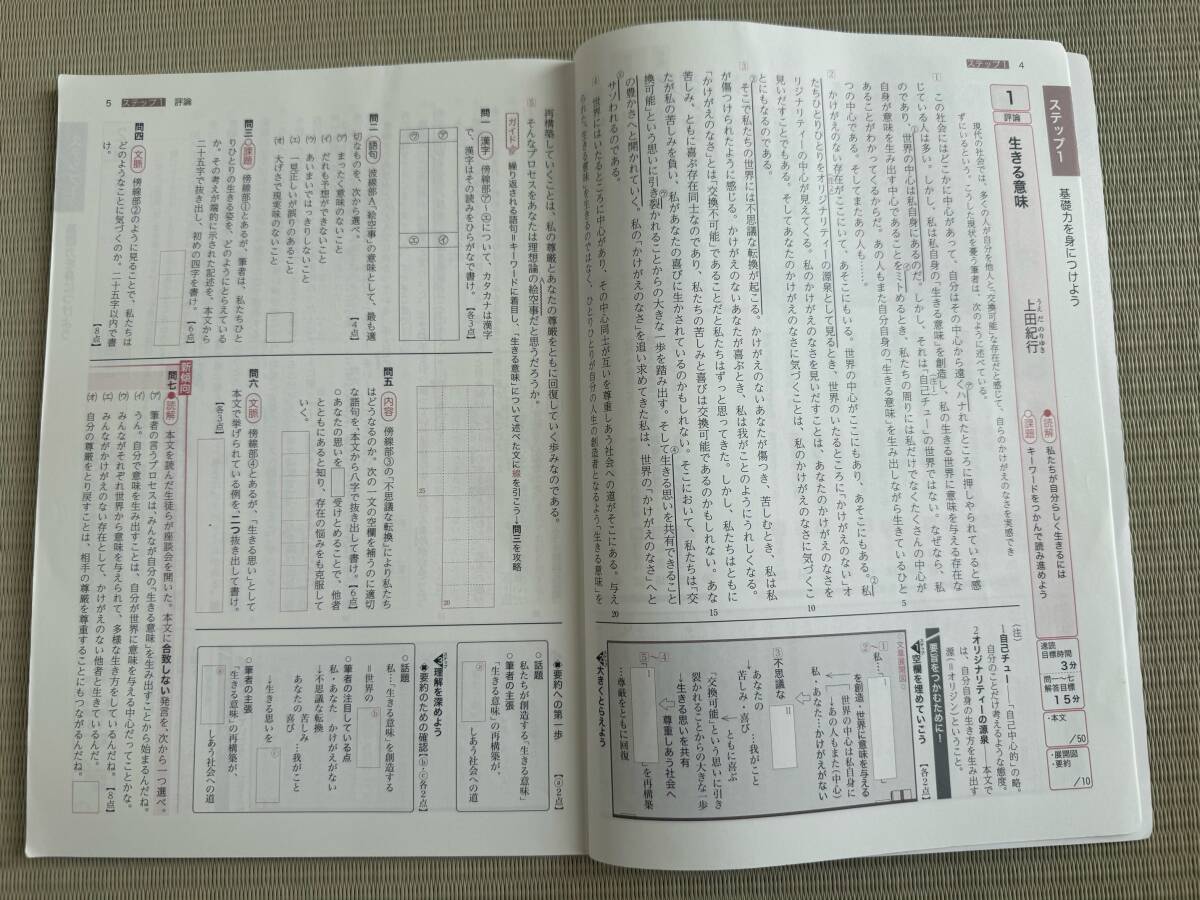 ステップ1 4
ステップ1 基礎力を身につけよう
1 評論 生きる意味
うえだ のりゆき
上田紀行
読解 私たちが自分らしく生きるには
課題 キーワードをつかんで読み進めよう
速読目標時間 3分
問一〜七解答目標 15分
・本文 /50
・展開図 ・要約 /10
現代の社会では、多くの人が自分を他人と「交換可能」な存在だと感じて、自らのかけがえのなさを実感でき
ずにいるという。こうした現状を憂う筆者は、次のように述べている。
1 この社会にはどこかに中心があって、自分はその中心から遠くハナれたところに押しやられていると感
じている人は多い。しかし、私は私自身の「生きる意味」を創造し、私の生きる世界に意味を与える存在な
のであり、世界の中心は私自身にあるのだ。しかし、それは「自己チュー」の世界ではない。なぜなら、私
自身が意味を生み出す中心であることをミトめるとき、私たちの周りには私だけでなくたくさんの中心が
あることがわかってくるからだ。あの人もまた自分自身の「生きる意味」を生み出しながら生きているひと
つの中心である。そしてまたあの人も……。
2 かけがえのない存在がここにいて、あそこにもいる。世界の中心がここにもあり、あそこにもある。私
たちひとりひとりをオリジナリティーの源泉として見るとき、世界のいたるところに「かけがえのない」オ
リジナリティーの中心が見えてくる。私のかけがえのなさを見いだすことは、あなたのかけがえのなさを
見いだすことでもある。そしてあなたのかけがえのなさに気づくことは、私のかけがえのなさに気づくこ
とにもなるのである。
3 そこで私たちの世界には不思議な転換が起こる。かけがえのないあなたが傷つき、苦しむとき、私は私
が傷つけられたように感じる。かけがえのないあなたが喜ぶとき、私は我がことのようにうれしくなる。
「かけがえのなさ」とは「交換不可能」であることだと私たちはずっと思ってきた。しかし、私たちはともに
苦しみ、ともに喜ぶ存在同士なのであり、私たちの苦しみと喜びは交換可能であるのかもしれない。あな
たが私の苦しみを負い、私があなたの喜びに生かされているのかもしれない。そこにおいて、私たちは「交
換可能」という思いに引き裂かれることからの大きな一歩を踏み出す。そして生きる思いを共有できること
の豊かさへと開かれていく。私の「かけがえのなさ」を追い求めてきた私は、世界の「かけがえのなさ」へと
サソわれるのである。
4 世界にはいたるところに中心があり、その中心同士が互いを尊重しあう社会への道がそこにある。与え
られた「生きる意味」を生きるのではなく、ひとりひとりが自分の人生の創造者となるよう「生きる意味」を
5
10
15
20
(注)
1 自己チュー=「自己中心的」の略。
自分のことだけ考えるような態度。
2 オリジナリティーの源泉 本文で
は、自分自身の生き方を生み出す
源(=オリジン)ということ。
要旨をつかむために!
空欄を埋めていこう 【各2点】
文章展開図
1〜2
私…I
を創造・世界に意味を与える
→世界の中心は私自身に
→あの人もまた(中心)
私・あなた…かけがえがない
3 不思議な II
あなたの
苦しみ・喜び…我がこと
→ともに喜ぶ
「交換可能」という思いに引き
裂かれることからの大きな一歩
→生きる思いを共有
尊重しあう社会へ
「I」を再構築
…尊厳をともに回復
大きくとらえよう
5 ステップ1 評論
再構築していくことは、私の尊厳とあなたの尊厳をともに回復していく歩みなのである。
5 そんなプロセスをあなたは理想論の絵空事だと思うだろうか。
ガイド 繰り返される語句=キーワードに着目し、「生きる意味」について述べた文に線を引こう→問三を攻略
問一 漢字 傍線部㋐〜㋓について、カタカナは漢字
で、漢字はその読みをひらがなで書け。【各3点】
㋐
㋑
㋒
㋓
問二 語句 波線部A「絵空事」の意味として、最も適
当なものを、次から選べ。【4点】
(ア) まったく意味のないこと
(イ) だれも予想ができないこと
(ウ) あいまいではっきりしないこと
(エ) 一見正しいが誤りのあること
(オ) 大げさで現実味のないこと
問三 課題 傍線部①とあるが、筆者は、私たちひと
りひとりの生きる姿を、どのようにとらえている
か。その考えが端的に示された記述を、本文から
二十五字で抜き出し、初めの四字を書け。【6点】
問四 文脈 傍線部②のように見ることで、私たちは
どのようなことに気づくのか。二十五字以内で書
け。【8点】
25
20
問五 内容 傍線部③の「不思議な転換」により私たち
はどうなるのか。次の一文の空欄を補うのに適切
な語句を、本文から八字で抜き出して書け。【6点】
○あなたの思いを
受けとめることで、他者
とともにあると知り、存在の悩みをも克服して
いく。
問六 文脈 傍線部④とあるが、「生きる思い」として
本文で挙げられている例を、二つ抜き出して書け。
【各3点】
新傾向
問七 読解 本文を読んだ生徒らが座談会を開いた。本文に合致しない発言を、次から一つ選べ。
(ア) 筆者の言うプロセスは、みんなが自分の「生きる意味」を生み出すことから始まるんだね。
(イ) うん。自分で意味を生み出すことは、自分が世界に意味を与える中心だってことかな。
(ウ) みんながそれぞれ世界から意味を与えられて、多様な生き方をしているんだね。
(エ) みんながかけがえのない存在として、かけがえのない他者と生きているんだ。
(オ) 自分の尊厳をとり戻すことは、相手の尊厳を尊重することにもつながるんだね。
【8点】
■要約への第一歩 【ⓐ2点】
○話題
私たちが創造する「生きる意味」
○筆者の主張
「生きる意味」の再構築が、
ⓐ しあう社会への道
理解を深めよう
■要約のための確認【ⓑ・ⓒ各2点】
○話題
私…「生きる意味」を創造する
=世界の ⓑ
○筆者の注目している点
私・あなた…かけがえがない
↓不思議な転換
あなたの苦しみ・喜び…我がこと
→生きる思いを ⓒ
○筆者の主張
「生きる意味」の再構築が、
ⓐ しあう社会への道